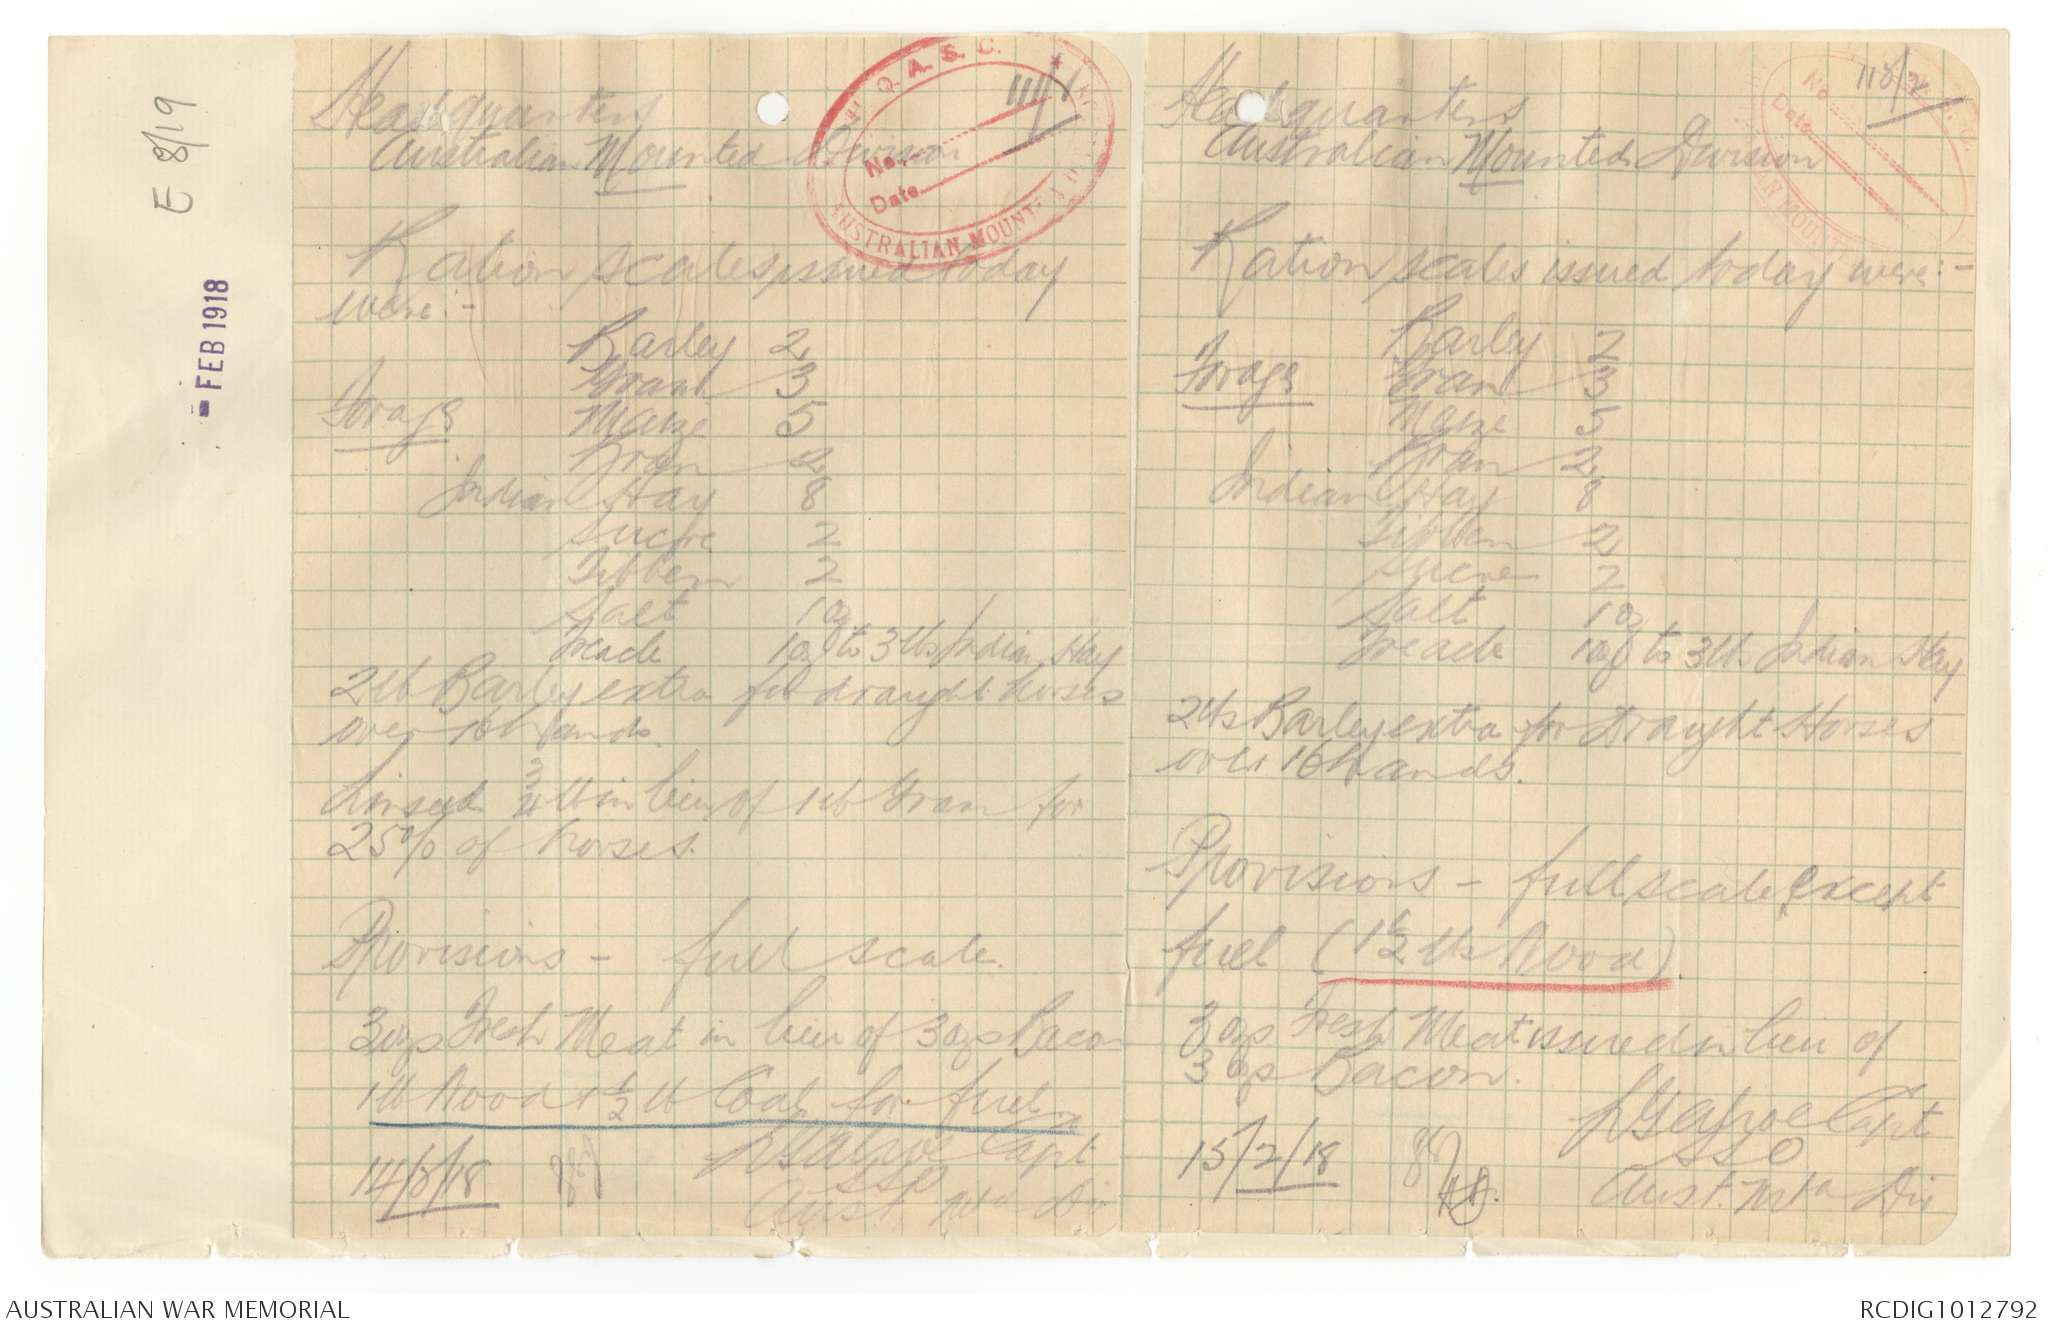 E 8/19
- FEB 1918
Headquarters
Australian Mounted Division
Q. A. S. C.
No.
Date
AUSTRALIAN MOUNT
111/1
Ration scales issued today
were:-
Barley 2
Gram 3
Forage
Maize 5
Bran 2
Indian Hay 8
Sucre 2
Tibben 2
Salt 1 oz
Treacle 1 oz to 3 lbs Indian Hay
2 lb Barley extra for draught horses
over 16 hands.
Linseed 3/4 lb in lieu of 1 lb Gram for
25% of horses.
Provisions - full scale.
3 ozs Fresh Meat in lieu of 3 ozs Bacon
1 lb Wood & 1/2 lb Coal for fuel
Capt
SSO
14/2/18
Aust Mtd Div
Headquarters
Australian Mounted Division
No.
Date
110/2
Ration scales issued today were:-
Barley 2
Forage Gram 3
Maize 5
Bran 2
Indian Hay 8
Tibben 2
Sucre 2
Salt 1 oz
Treacle 1 oz to 3 lb Indian Hay
2 lbs Barley extra for Draught Horses
over 16 hands.
Provisions - full scale except
fuel (1 1/2 lbs Wood)
3 ozs Fresh Meat issued in lieu of
3 ozs Bacon.
Capt
SSO
15/2/18
Aust. Mtd Div
AUSTRALIAN WAR MEMORIAL
RCDIG1012792